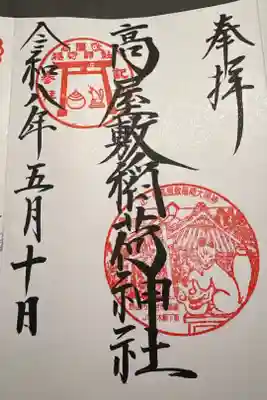 奉拝
高屋敷稲荷神社
令和八年五月十日